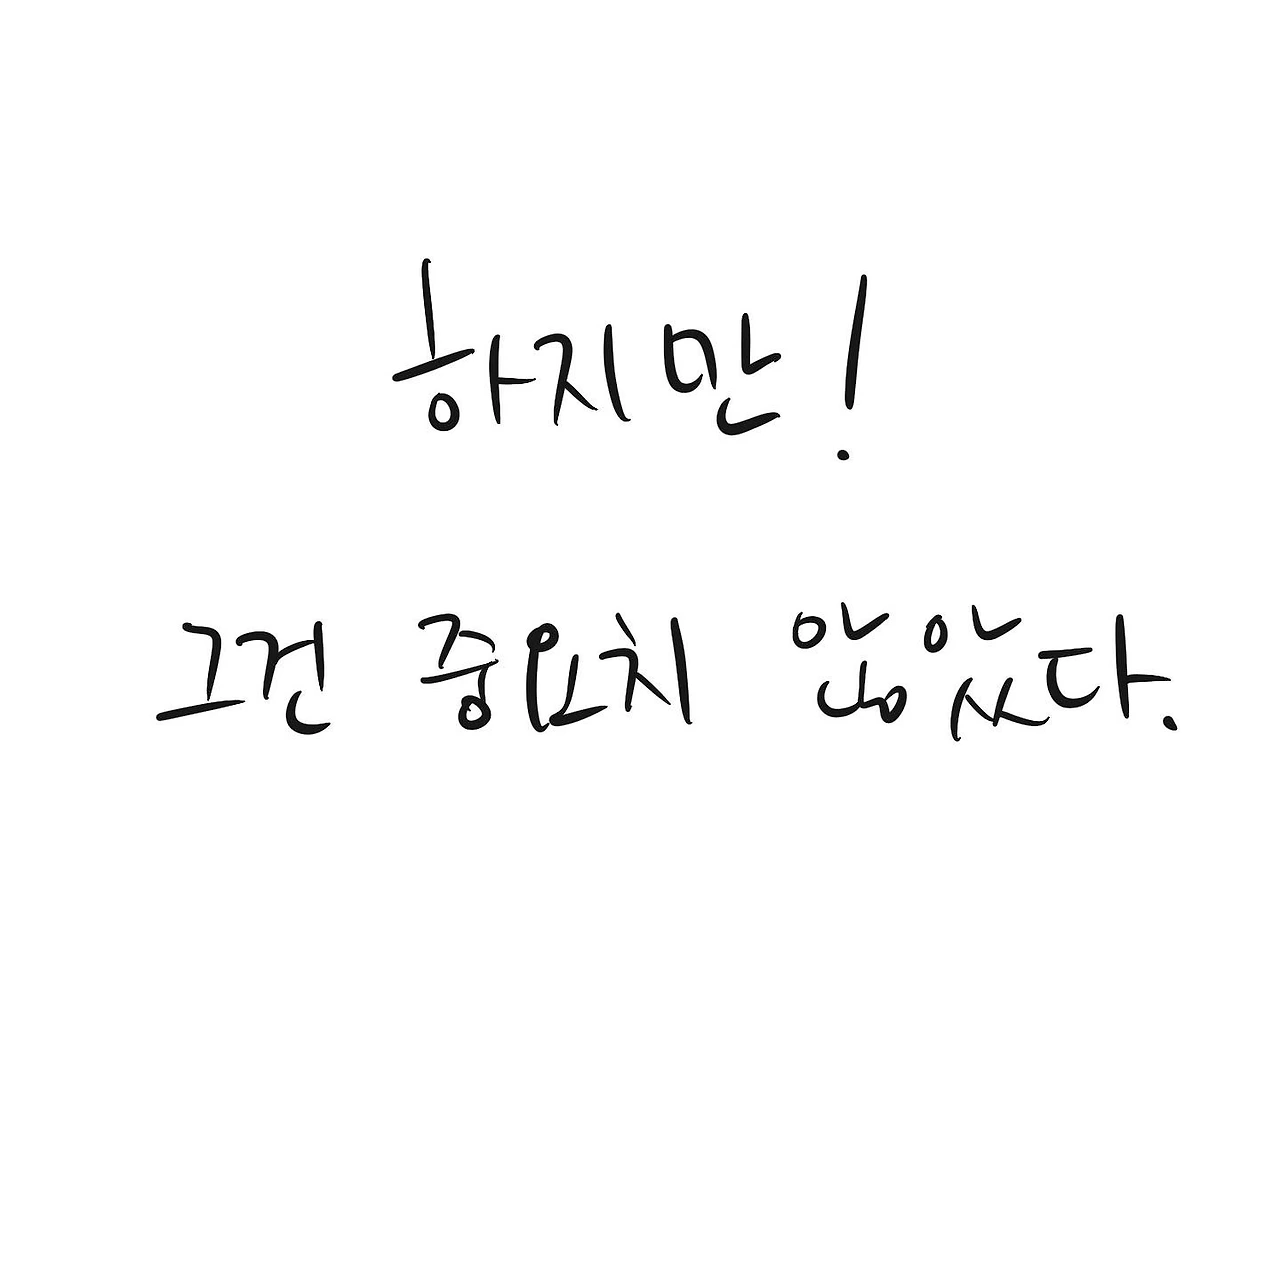 하지만!
그건 중요치 않았다.